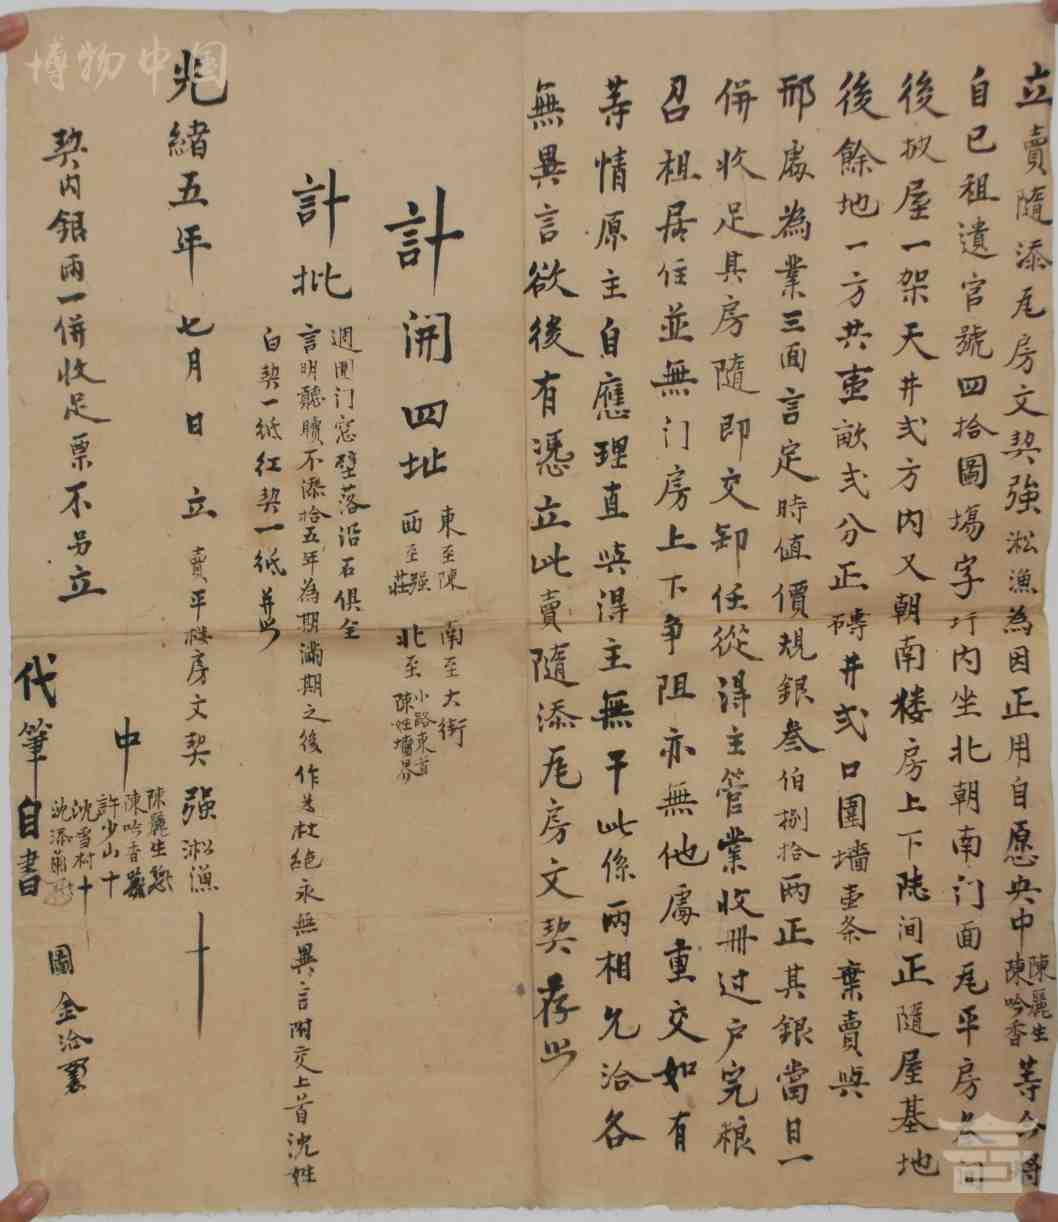 立賣隨添瓦房文契強淞漁為因正用自愿央中陳麗生陳吟香等今將
自己祖遺官號四拾圖塲字圩內坐北朝南门面瓦平房
後披屋一架天井弍方內又朝南楼房上下陸间正隨屋基地
後餘地一方共壹畝弍分正磚井弍口圍墻壹条棄賣與
邢處為業三面言定時值價規銀叁伯捌拾兩正其銀當日一
併收足其房隨即交卸任從淂主管業收冊过户完粮
召租居住並無门房上下争阻亦無他處重交如有
等情原主自應理直與淂主無干此係兩相允洽各
無異言欲後有憑立此賣隨添瓦房文契存照
計開四址
東至陳 南至大街
西至强莊 北至小路東首陳姓墻界
計批
週圍门窓壁落沿石俱全
言明聽贖不添拾五年為期滿期之後作為杜絕永無異言附交上首沈姓
白契一紙红契一紙并照
光緒五年七月 日立 賣平楼房文契强淞漁 十
契內銀兩一併收足票不另立
中
陳麗生
陳吟香
許少山 十
沈雪村 十
圖 金洽
代筆自書
博物中国